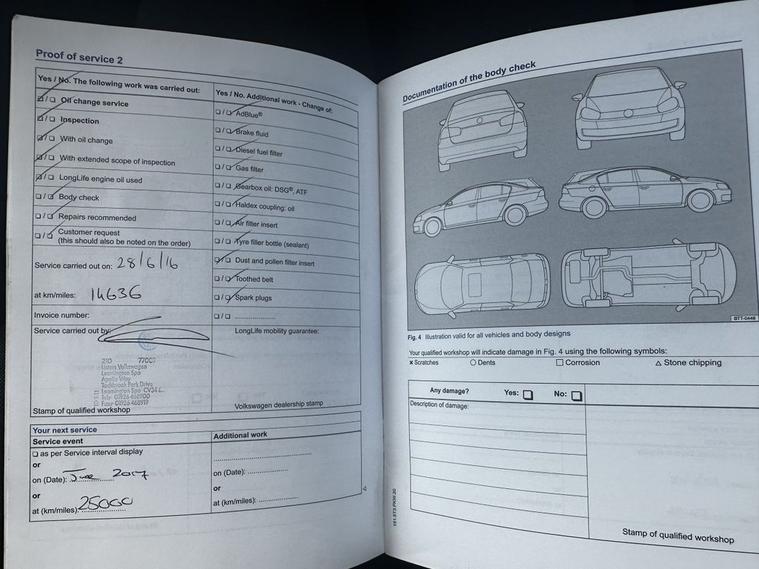 Proof of service 2
Yes / No. The following work was carried out:
Oil change service
Inspection
With oil change
With extended scope of inspection
LongLife engine oil used
Body check
Repairs recommended
Customer request
(this should also be noted on the order)
Service carried out on: 28/6/16
at km/miles: 14636
Invoice number:
Service carried out by:
210 77007
Listers Volkswagen
Leamington Spa
Apollo Way
Tachbrook Park Drive
Leamington Spa CV34
Stamp of qualified workshop
Yes / No. Additional work - Change of:
AdBlue®
Brake fluid
Diesel fuel filter
Gas filter
Gearbox oil: DSG®, ATF
Haldex coupling: oil
Air filter insert
Tyre filler bottle (sealant)
Dust and pollen filter insert
Toothed belt
Spark plugs
LongLife mobility guarantee:
Volkswagen dealership stamp
Your next service
Service event
as per Service interval display
or
on (Date): June 2017
or
at (km/miles): 25000
Additional work
on (Date):
or
at (km/miles):
4
Documentation of the body check
BTT-0448
Fig. 4 Illustration valid for all vehicles and body designs
Your qualified workshop will indicate damage in Fig. 4 using the following symbols:
× Scratches ○ Dents □ Corrosion △ Stone chipping
Any damage? Yes: No:
Description of damage:
Stamp of qualified workshop